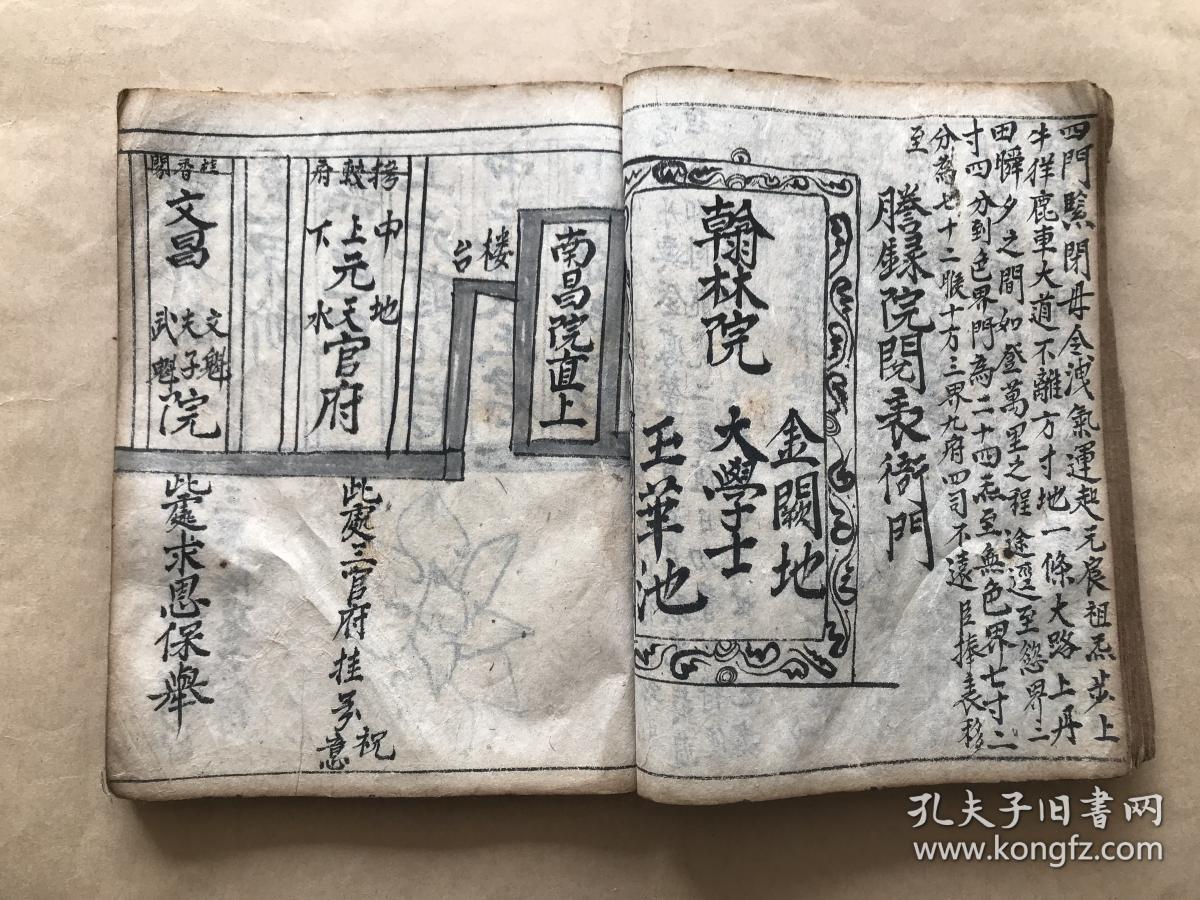 四門緊閉毋令洩氣運起元宸祖炁步上
牛羊鹿車大道不離方寸地一條大路上丹
田瞬夕之間如登萬里之程途逕至慾界二
寸四分到色界門為二十四炁至無色界七寸二
分為七十二候十方三界九府四司不遠臣捧表移
至
謄錄院閱表衙門
翰林院
金闕地
大學士
玉華池
南昌院直上
楼台
府
中地
上元天官府
下水
此處三官府挂号祝意
桂香閣
文昌
文魁
夫子院
武魁
此處求恩保舉
孔夫子旧书网
www.kongfz.com